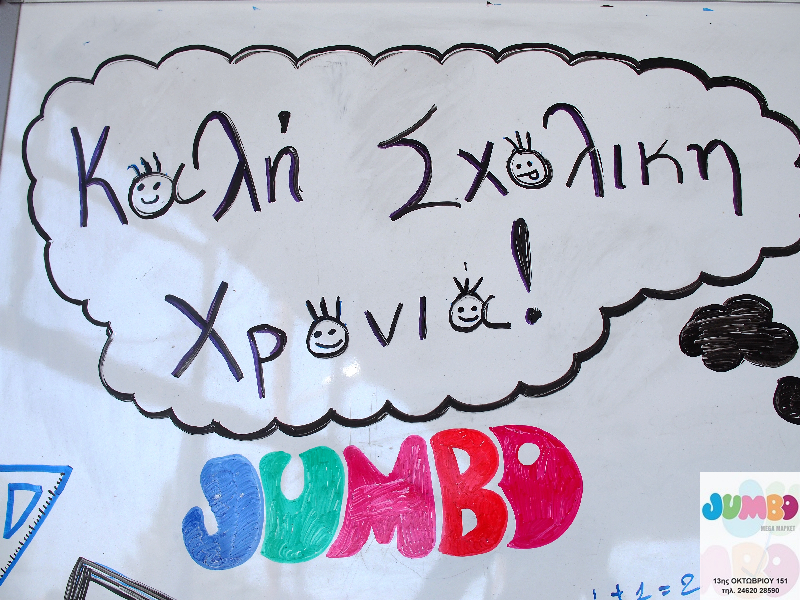 Καλή Σχολικη
Χρονιά!
JUMBO
1 + 1 = 2
JUMBO
MEGA MARKET
13ης ΟΚΤΩΒΡΙΟΥ 151
τηλ. 24620 28590